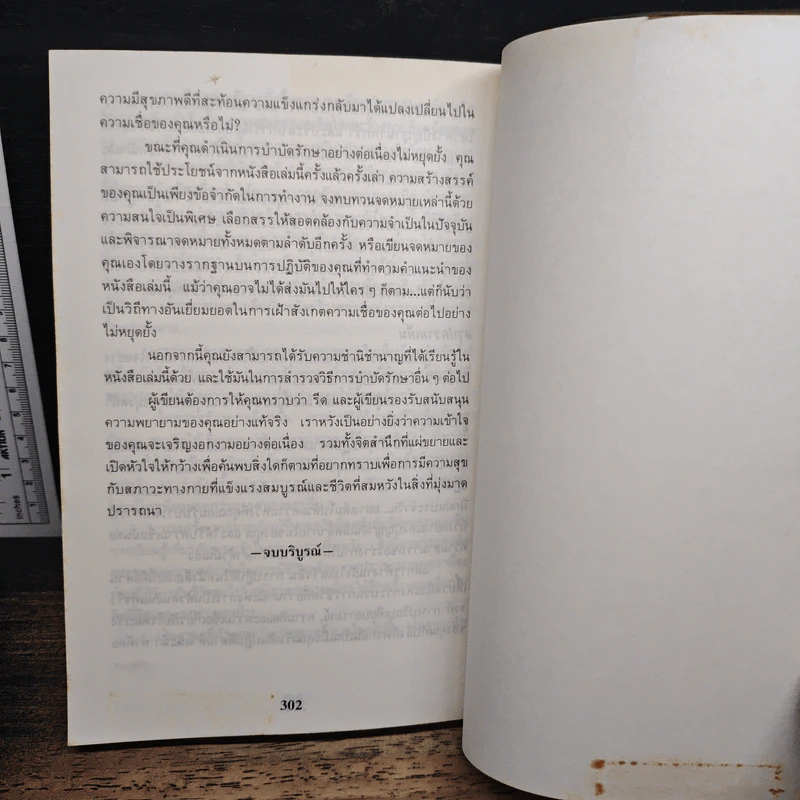 ความมีสุขภาพดีที่สะท้อนความแข็งแกร่งกลับมาได้แปลงเปลี่ยนไปใน
ความเชื่อของคุณหรือไม่?
ขณะที่คุณดำเนินการบำบัดรักษาอย่างต่อเนื่องไม่หยุดยั้ง คุณ
สามารถใช้ประโยชน์จากหนังสือเล่มนี้ครั้งแล้วครั้งเล่า ความสร้างสรรค์
ของคุณเป็นเพียงข้อจำกัดในการทำงาน จงทบทวนจดหมายเหล่านี้ด้วย
ความสนใจเป็นพิเศษ เลือกสรรให้สอดคล้องกับความจำเป็นในปัจจุบัน
และพิจารณาจดหมายทั้งหมดตามลำดับอีกครั้ง หรือเขียนจดหมายของ
คุณเองโดยวางรากฐานบนการปฏิบัติของคุณที่ทำตามคำแนะนำของ
หนังสือเล่มนี้ แม้ว่าคุณอาจไม่ได้ส่งมันไปให้ใคร ๆ ก็ตาม...แต่ก็นับว่า
เป็นวิถีทางอันเยี่ยมยอดในการเฝ้าสังเกตความเชื่อของคุณต่อไปอย่าง
ไม่หยุดยั้ง
นอกจากนี้คุณยังสามารถได้รับความชำนิชำนาญที่ได้เรียนรู้ใน
หนังสือเล่มนี้ด้วย และใช้มันในการสำรวจวิธีการบำบัดรักษาอื่น ๆ ต่อไป
ผู้เขียนต้องการให้คุณทราบว่า รีด และผู้เขียนรองรับสนับสนุน
ความพยายามของคุณอย่างแท้จริง เราหวังเป็นอย่างยิ่งว่าความเข้าใจ
ของคุณจะเจริญงอกงามอย่างต่อเนื่อง รวมทั้งจิตสำนึกที่แผ่ขยายและ
เปิดหัวใจให้กว้างเพื่อค้นพบสิ่งใดก็ตามที่อยากทราบเพื่อการมีความสุข
กับสภาวะทางกายที่แข็งแรงสมบูรณ์และชีวิตที่สมหวังในสิ่งที่มุ่งมาด
ปรารถนา
—จบบริบูรณ์—
302